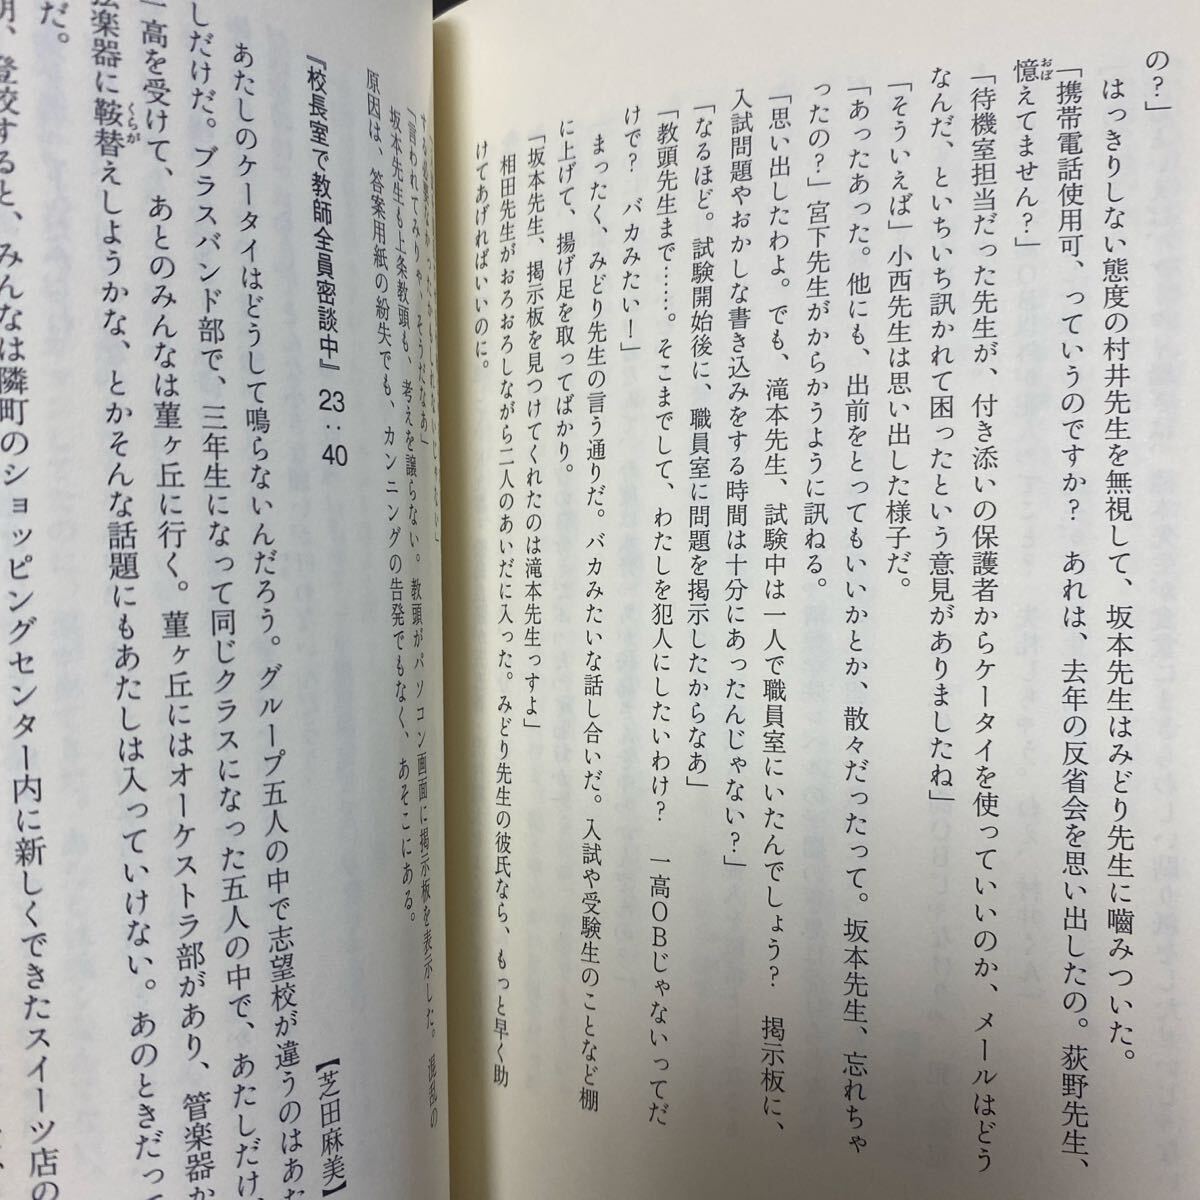 の？」
はっきりしない態度の村井先生を無視して、坂本先生はみどり先生に嚙みついた。
「携帯電話使用可、っていうのですか？　あれは、去年の反省会を思い出したの。荻野先生、
憶えてません？」
おぼ
「待機室担当だった先生が、付き添いの保護者からケータイを使っていいのか、メールはどう
なんだ、といちいち訊かれて困ったという意見がありましたね」
「そういえば」小西先生は思い出した様子だ。
「あったあった。他にも、出前をとってもいいかとか、散々だったって。坂本先生、忘れちゃ
ったの？」宮下先生がからかうように訊ねる。
「思い出したわよ。でも、滝本先生、試験中は一人で職員室にいたんでしょう？　掲示板に、
入試問題やおかしな書き込みをする時間は十分にあったんじゃない？」
「なるほど。試験開始後に、職員室に問題を掲示したからなあ」
「教頭先生まで……。そこまでして、わたしを犯人にしたいわけ？　一高ＯＢじゃないってだ
けで？　バカみたい！」
まったく、みどり先生の言う通りだ。バカみたいな話し合いだ。入試や受験生のことなど棚
に上げて、揚げ足を取ってばかり。
「坂本先生、掲示板を見つけてくれたのは滝本先生っすよ」
相田先生がおろおろしながら二人のあいだに入った。みどり先生の彼氏なら、もっと早く助
けてあげればいいのに。
「言われてみりゃ、そうだなあ」
坂本先生も上条教頭も、考えを譲らない。教頭がパソコン画面に掲示板を表示した。混乱の
原因は、答案用紙の紛失でも、カンニングの告発でもなく、あそこにある。
『校長室で教師全員密談中』23：40
【芝田麻美】
あたしのケータイはどうして鳴らないんだろう。グループ五人の中で志望校が違うのはあた
しだけだ。ブラスバンド部で、三年生になって同じクラスになった五人の中で、あたしだけ、
一高を受けて、あとのみんなは菫ヶ丘に行く。菫ヶ丘にはオーケストラ部があり、管楽器か
弦楽器に鞍替えしようかな、とかそんな話題にもあたしは入っていけない。あのときだって
くらが
だ。
登校すると、みんなは隣町のショッピングセンター内に新しくできたスイーツ店の